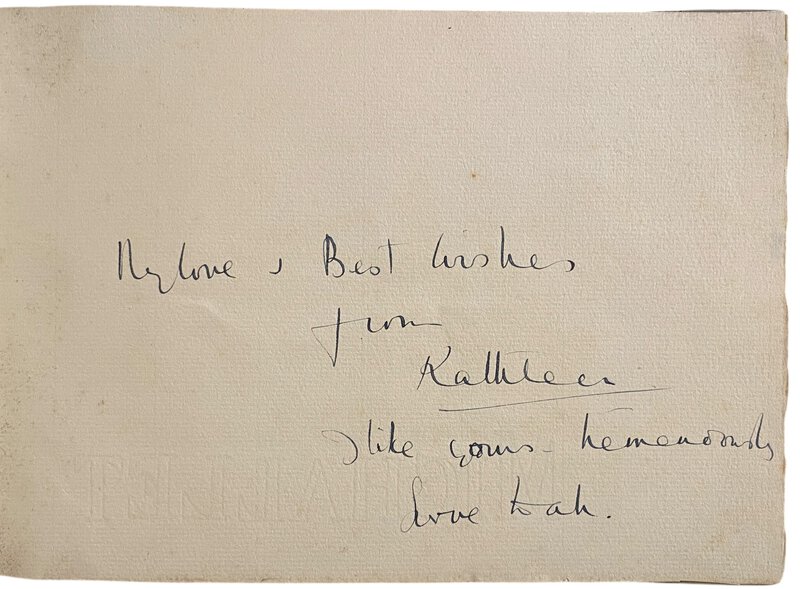 My love & Best Wishes
from
Kathleen
I like yours - tremendously
Love to all.